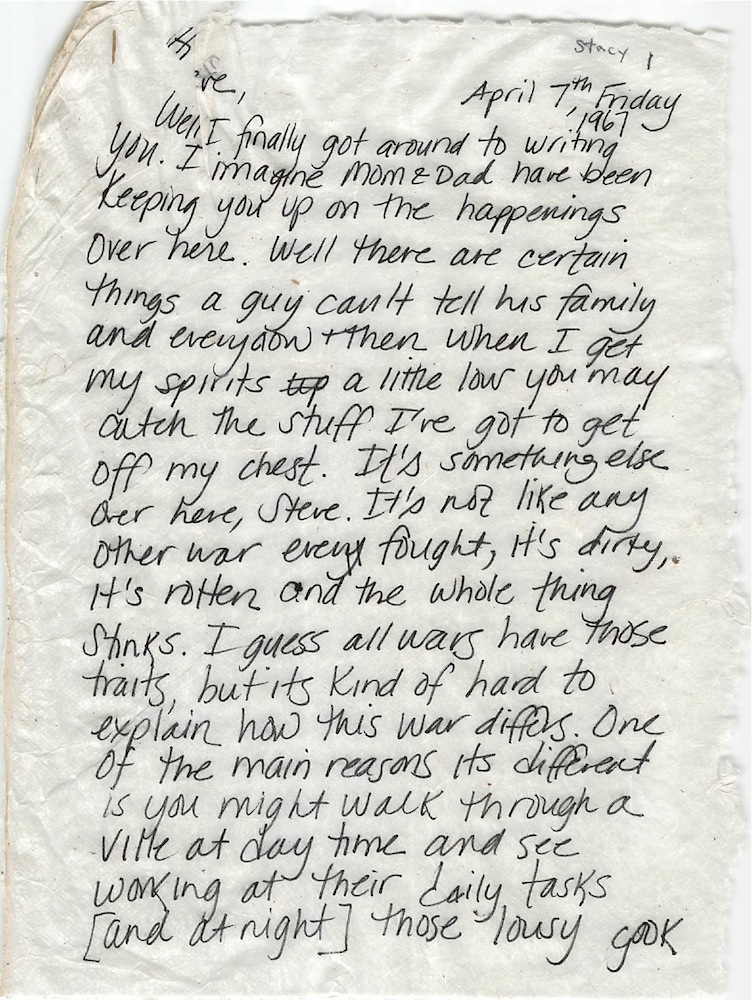 stacy 1
've,
April 7th, Friday
1967
Well I finally got around to writing
you. I imagine Mom & Dad have been
Keeping you up on the happenings
Over here. Well there are certain
things a guy can't tell his family
and + then when I get
my spirits up a little low you may
catch the stuff I've got to get
off my chest. It's something else
over here, Steve. It's not like any
other war every fought, it's dirty,
It's rotten and the whole thing
Stinks. I guess all wars have those
traits, but its kind of hard to
explain how this war differs. One
of the main reasons its different
is you might walk through a
Ville at day time and see
working at their daily tasks
[and at night] those lousy gook